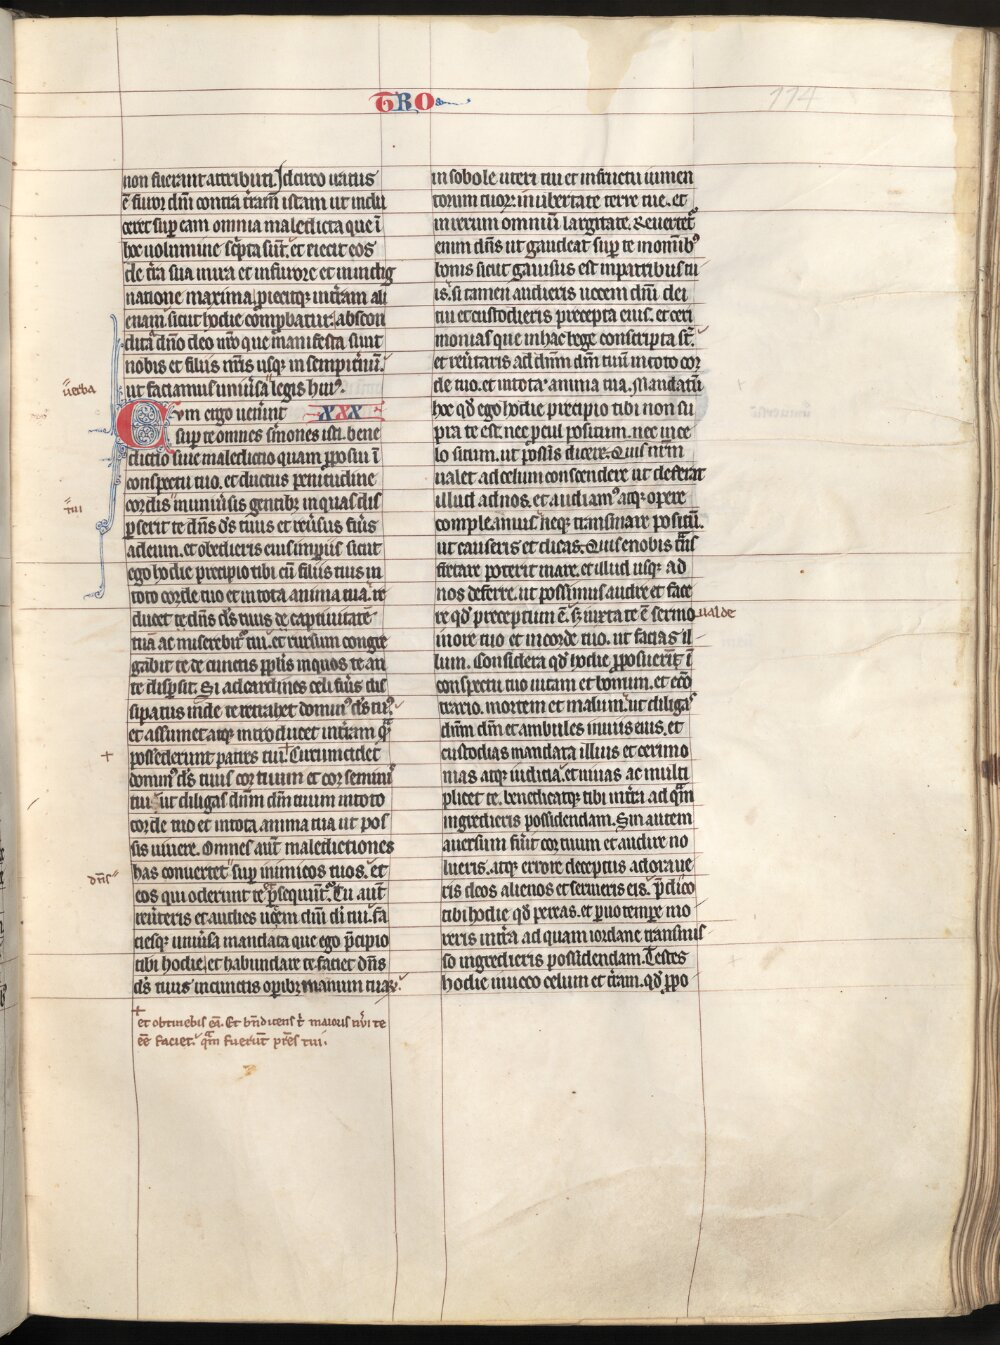 TRO
114
non fuerant attributi. Idcirco iratus
ē furor dn̄i contra t̄ram istam ut indu
ceret sup eam omnia maledicta que ī
hoc uolumine sc̄pta sūt. et eiecit eos
de t̄ra sua in ira et in furore et in indig
natione maxima. proiecitq; in t̄ram ali
enam sicut hodie comprobatur. abscon
dita dn̄o deo nr̄o que manifesta sunt
nobis et filiis nr̄is usq; in sempit̄nū.
ut faciamus uniūsa legis hui⁹.
uerba
Cvm ergo uenerint XXX
sup te omnes s̄mones isti. bene
dictio siue maledictio quam proposui ī
conspectu tuo. et ductus penitudine
cordis in uniūsis gentib; in quas dis
tui
perserit te dn̄s ds̄ tuus et reūsus fūis
ad eum. et obedieris eius imperiis sicut
ego hodie precipio tibi cū filiis tuis in
toto corde tuo et in tota anima tua. re
ducet te dn̄s ds̄ tuus de captiuitate
tua ac miserebit̄ tui. et rursum congre
gabit te de cunctis pplis in quos te an
te dispersit. Si ad cardines celi fūis dis
sipatus inde te retrahet domin⁹ ds̄ tu⁹.
et assumet atq; introducet in t̄ram quā
possederunt patres tui. Circumcidet
domin⁹ ds̄ tuus cor tuum et cor semini
tui. ut diligas dn̄m dm̄ tuum in toto
corde tuo et in tota anima tua ut pos
sis uiuere. Omnes aūt maledictiones
has conuertet sup inimicos tuos. et
dn̄s
eos qui oderunt te et psequunt̄. Tu aūt
reūteris et audies uocem dn̄i di tui. fa
ciesq; uniūsa mandata que ego p̄cipio
tibi hodie. et habundare te faciet dn̄s
ds̄ tuus in cunctis operib; manuum tuar.
et obtinebis eā. Et bn̄dicens t̄ maioris nūi te
ēē faciet. quam fuerūt pr̄es tui.
in sobole uteri tui et in fructu iumen
torum tuor. in ubertate terre tue. et
in rerum omniū largitate. Reuertet̄
enim dn̄s ut gaudeat sup te in omnib⁹
bonis sicut gauisus est in patribus tu
is. si tamen audieris uocem dn̄i dei
tui et custodieris precepta eius. et ceri
monias que in hac lege conscripta st̄.
et reūtaris ad dn̄m dm̄ tuū in toto cor
de tuo. et in tota anima tua. Mandatū
hoc qd̄ ego hodie precipio tibi non su
pra te est. nec procul positum. nec in ce
lo situm. ut possis dicere. Quis nr̄m
ualet ad celum conscendere ut deferat
illud ad nos. et audiam⁹ atq; opere
compleamus. neq; transmare positū.
ut causeris et dicas. Quis e nobis trans
fretare poterit mare. et illud usq; ad
nos deferre. ut possimus audire et face
re qd̄ preceptum ē. s; iuxta te ē sermo ualde
in ore tuo et in corde tuo. ut facias il
lum. Considera qd̄ hodie proposuerim ī
conspectu tuo uitam et bonum. et ecō
trario. mortem et malum. ut diligas
dn̄m dm̄ et ambules in uiis eius. et
custodias mandata illius et cerimo
nias atq; iudicia. et uiuas ac multi
plicet te. benedicatq; tibi in t̄ra ad quā
ingredieris possidendam. Sin autem
auersum fūit cor tuum et audire no
lueris. atq; errore deceptus adoraue
ris deos alienos et serueris eis. p̄dico
tibi hodie qd̄ pereas. et paruo tempore mo
reris in t̄ra ad quam iordane transmis
so ingredieris possidendam. Testes
hodie inuoco celum et t̄ram. qd̄ propo